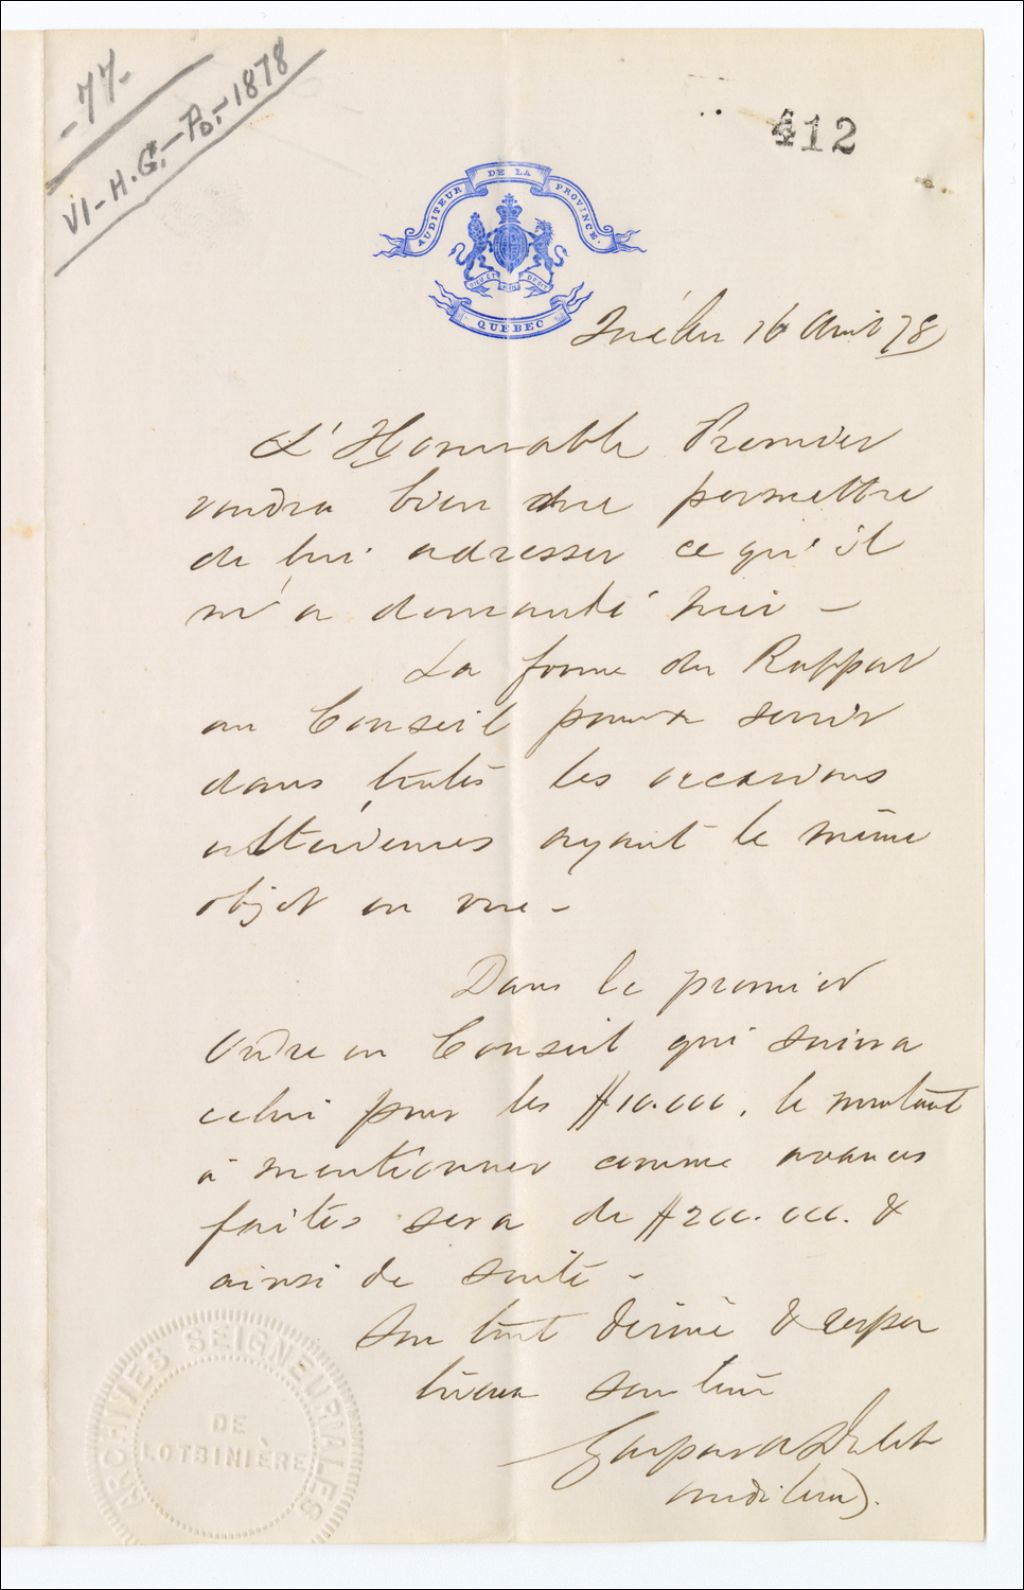 -77-
VI-H.G.-Po.-1878
412
AUDITEUR DE LA PROVINCE.
DIEU ET MON DROIT
QUEBEC
Québec 16 Avril 78
L'Honorable Premier
voudra bien me permettre
de lui adresser ce qu'il
m'a demandé hier -
La forme du Rapport
au Conseil pourra servir
dans toutes les occasions
ultérieures ayant le même
objet en vue -
Dans le premier
Ordre en Conseil qui suivra
celui pour les $10.000, le montant
à mentionner comme avances
faites sera de $200.000. &
ainsi de suite -
Son tout dévoué & respec
tueux serviteur
Gaspard Drolet
Auditeur
ARCHIVES SEIGNEURIALES
DE
LOTBINIÈRE